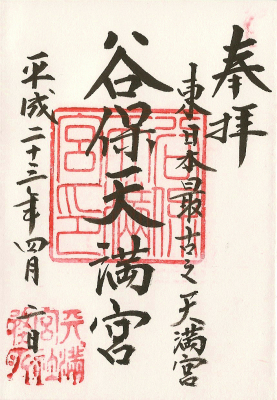 奉拝
東日本最古之天満宮
谷保天満宮
平成二十三年四月六日